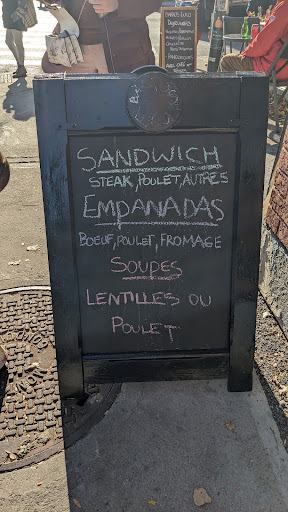 SANDWICH
STEAK, POULET, AUTRES
EMPANADAS
BOEUF, POULET, FROMAGE
SOUPES
LENTILLES OU
POULET